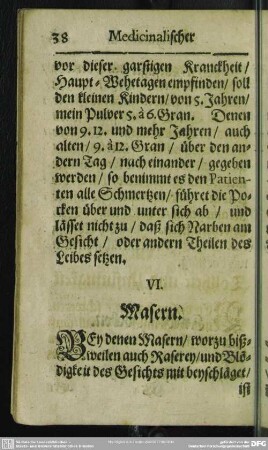 38 Medicinalischer
vor dieser garstigen Kranckheit /
Haupt-Wehetagen empfinden / soll
den kleinen Kindern / von 5. Jahren /
mein Pulver 5. à 6. Gran. Denen
von 9. 12. und mehr Jahren / auch
alten / 9. à 12. Gran / über den an-
dern Tag / nach einander / gegeben
werden / so benimmt es den Patien-
ten alle Schmertzen / führet die Po-
cken über und unter sich ab / und
lässet nicht zu / daß sich Narben am
Gesicht / oder andern Theilen des
Leibes setzen.
VI.
Masern.
BEy denen Masern / worzu biß-
weilen auch Raserey / und Blö-
digkeit des Gesichts mit beyschläget /
ist